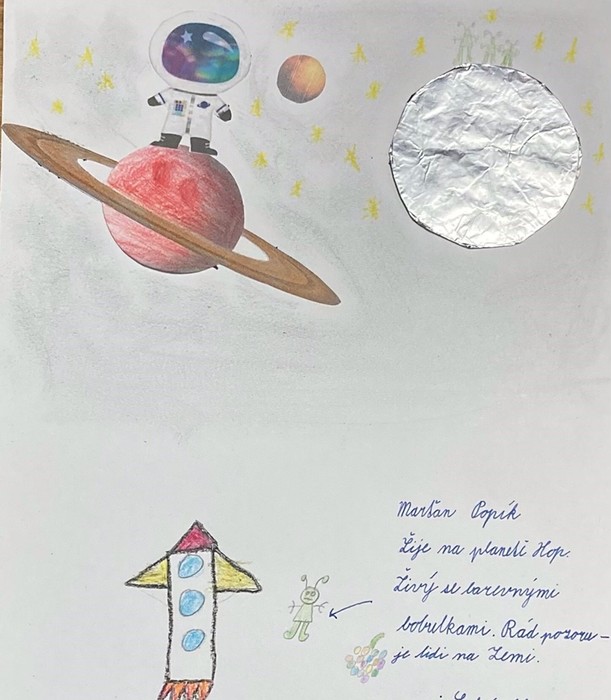 Maršan Popík
Žije na planetě Hop.
Živý se barevnými
bobulkami. Rád pozoru-
je lidi na Zemi.